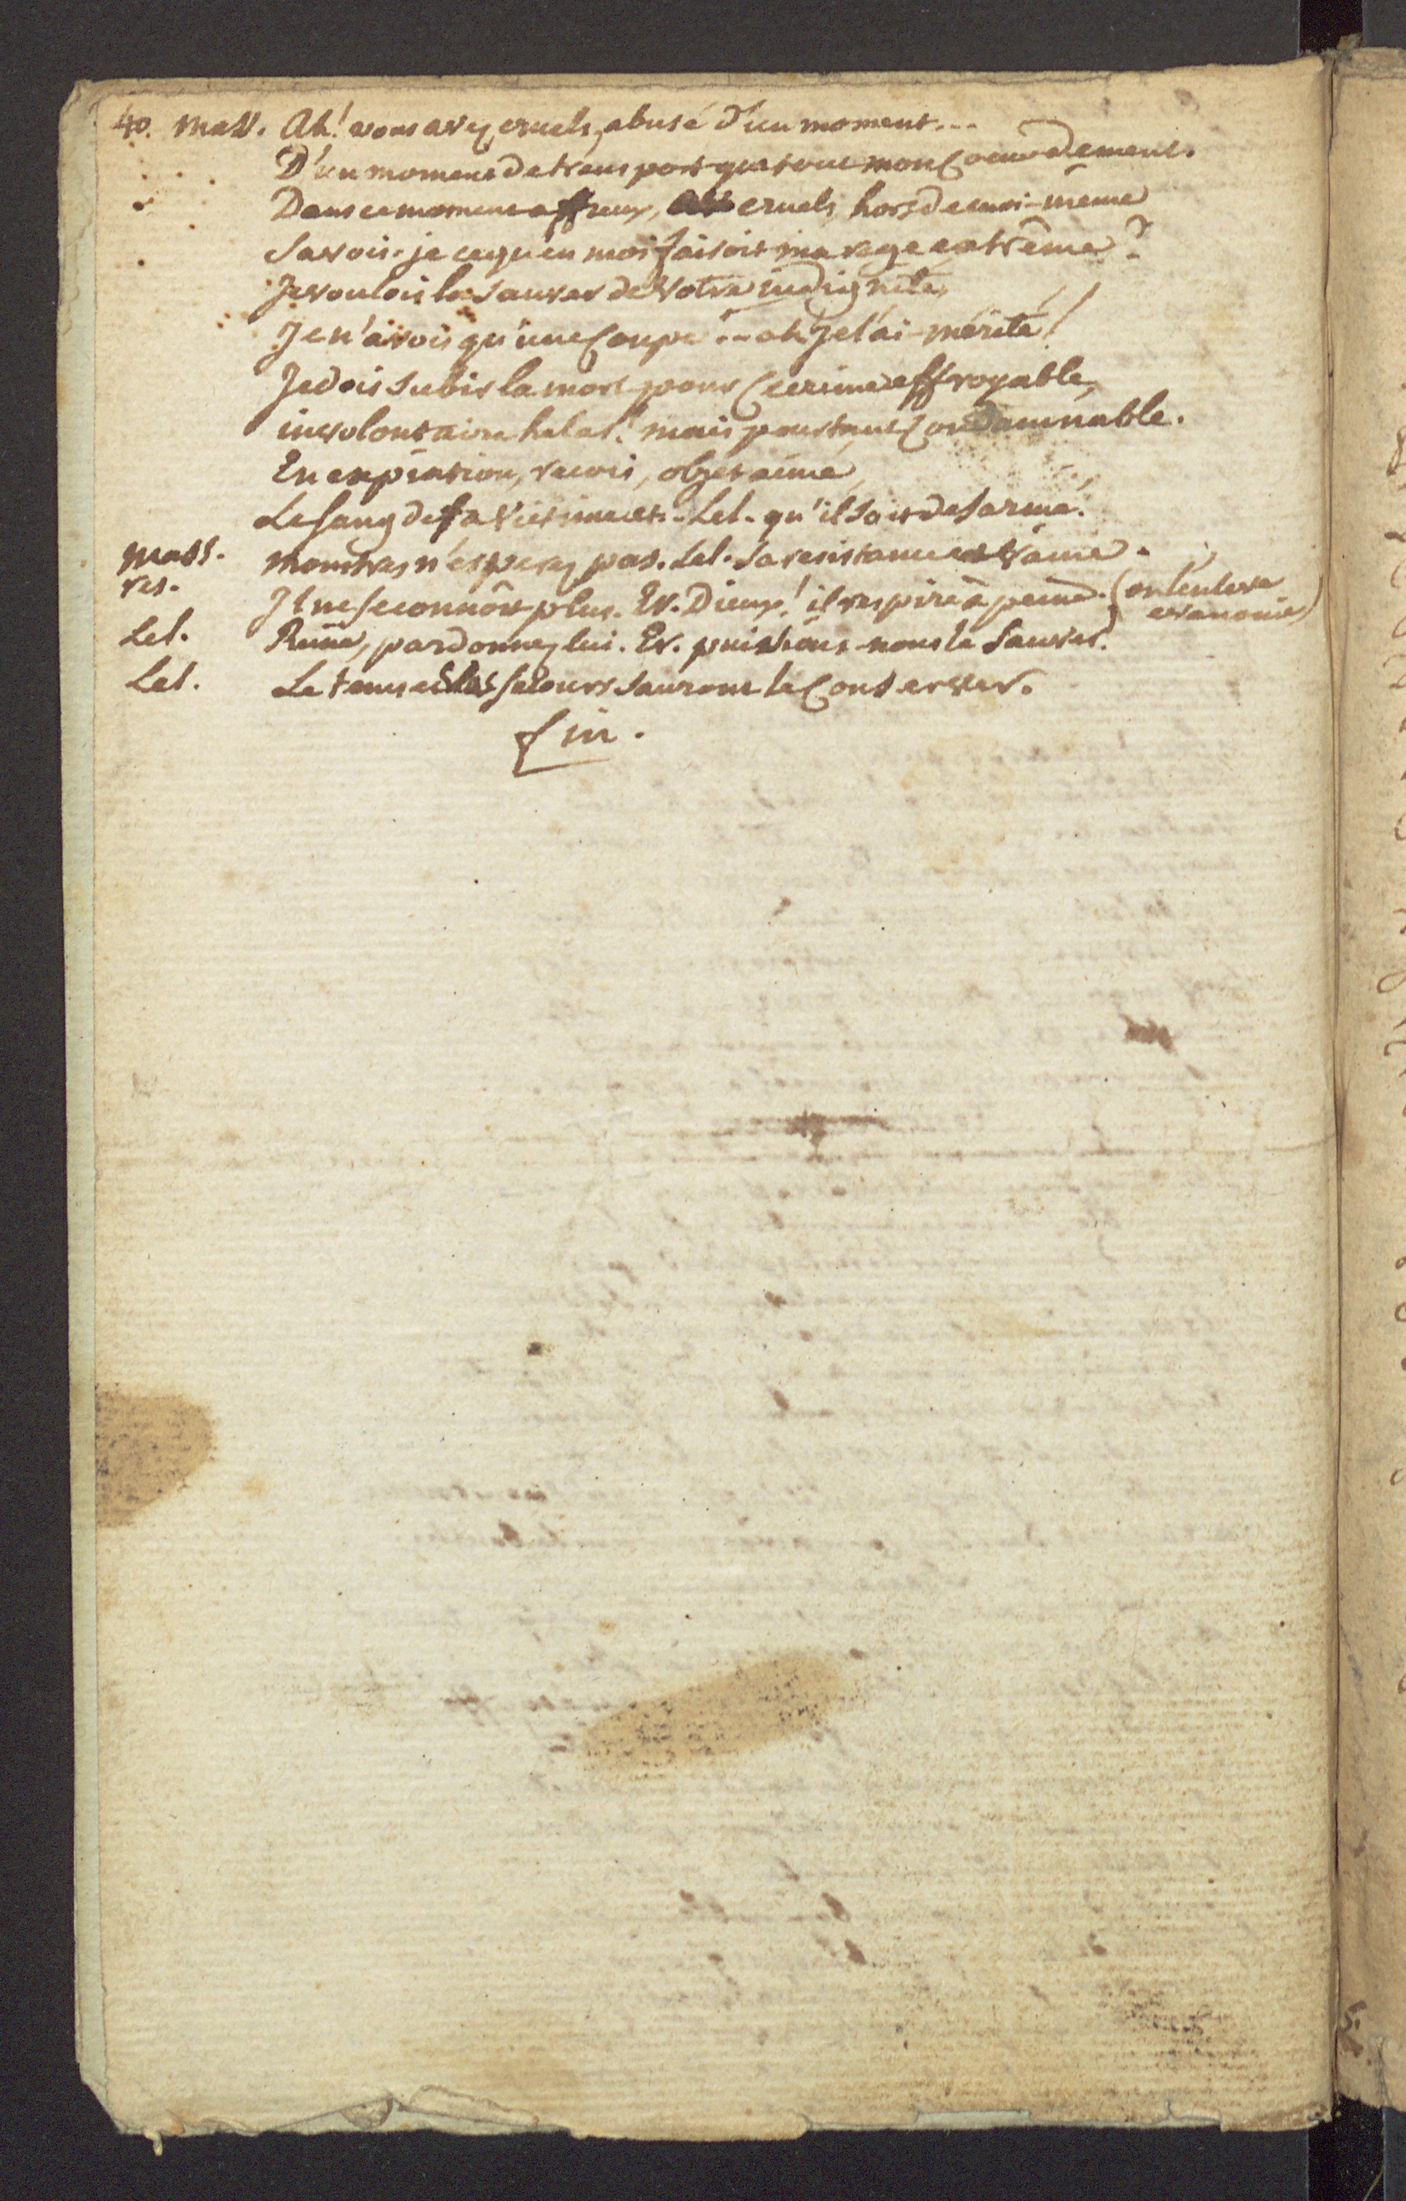 40. Mass. Ah! vous avez, cruels, abusé d'un moment...
D'un moment de transport que tout mon coeur dement.
Dans ce moment affreux, cruels, hors de moi-même
Savois-je ce qu'en moi faisoit ma rage extrême?
Je voulois la sauver de votre indignité,
Je n'avois qu'une coupe... ah! je l'ai mérité!
Je dois subir la mort pour ce crime effroyable,
involontaire helas! mais pourtant condamnable.
En expiation, recois, objet aimé,
Le sang de ta victime et.. Lel. qu'il soit desarmé.
Mass. monstres n'esperez pas. Lel. sa resistance est vaine.
res. Il ne se connoît plus. Ev. Dieux! il respire à peine. (on l'enleve
evanoui)
Lel. Reine, pardonnez lui. Ev. puissions-nous le sauver.
Lel. Le tems et les secours sauront le conserver.
fin.